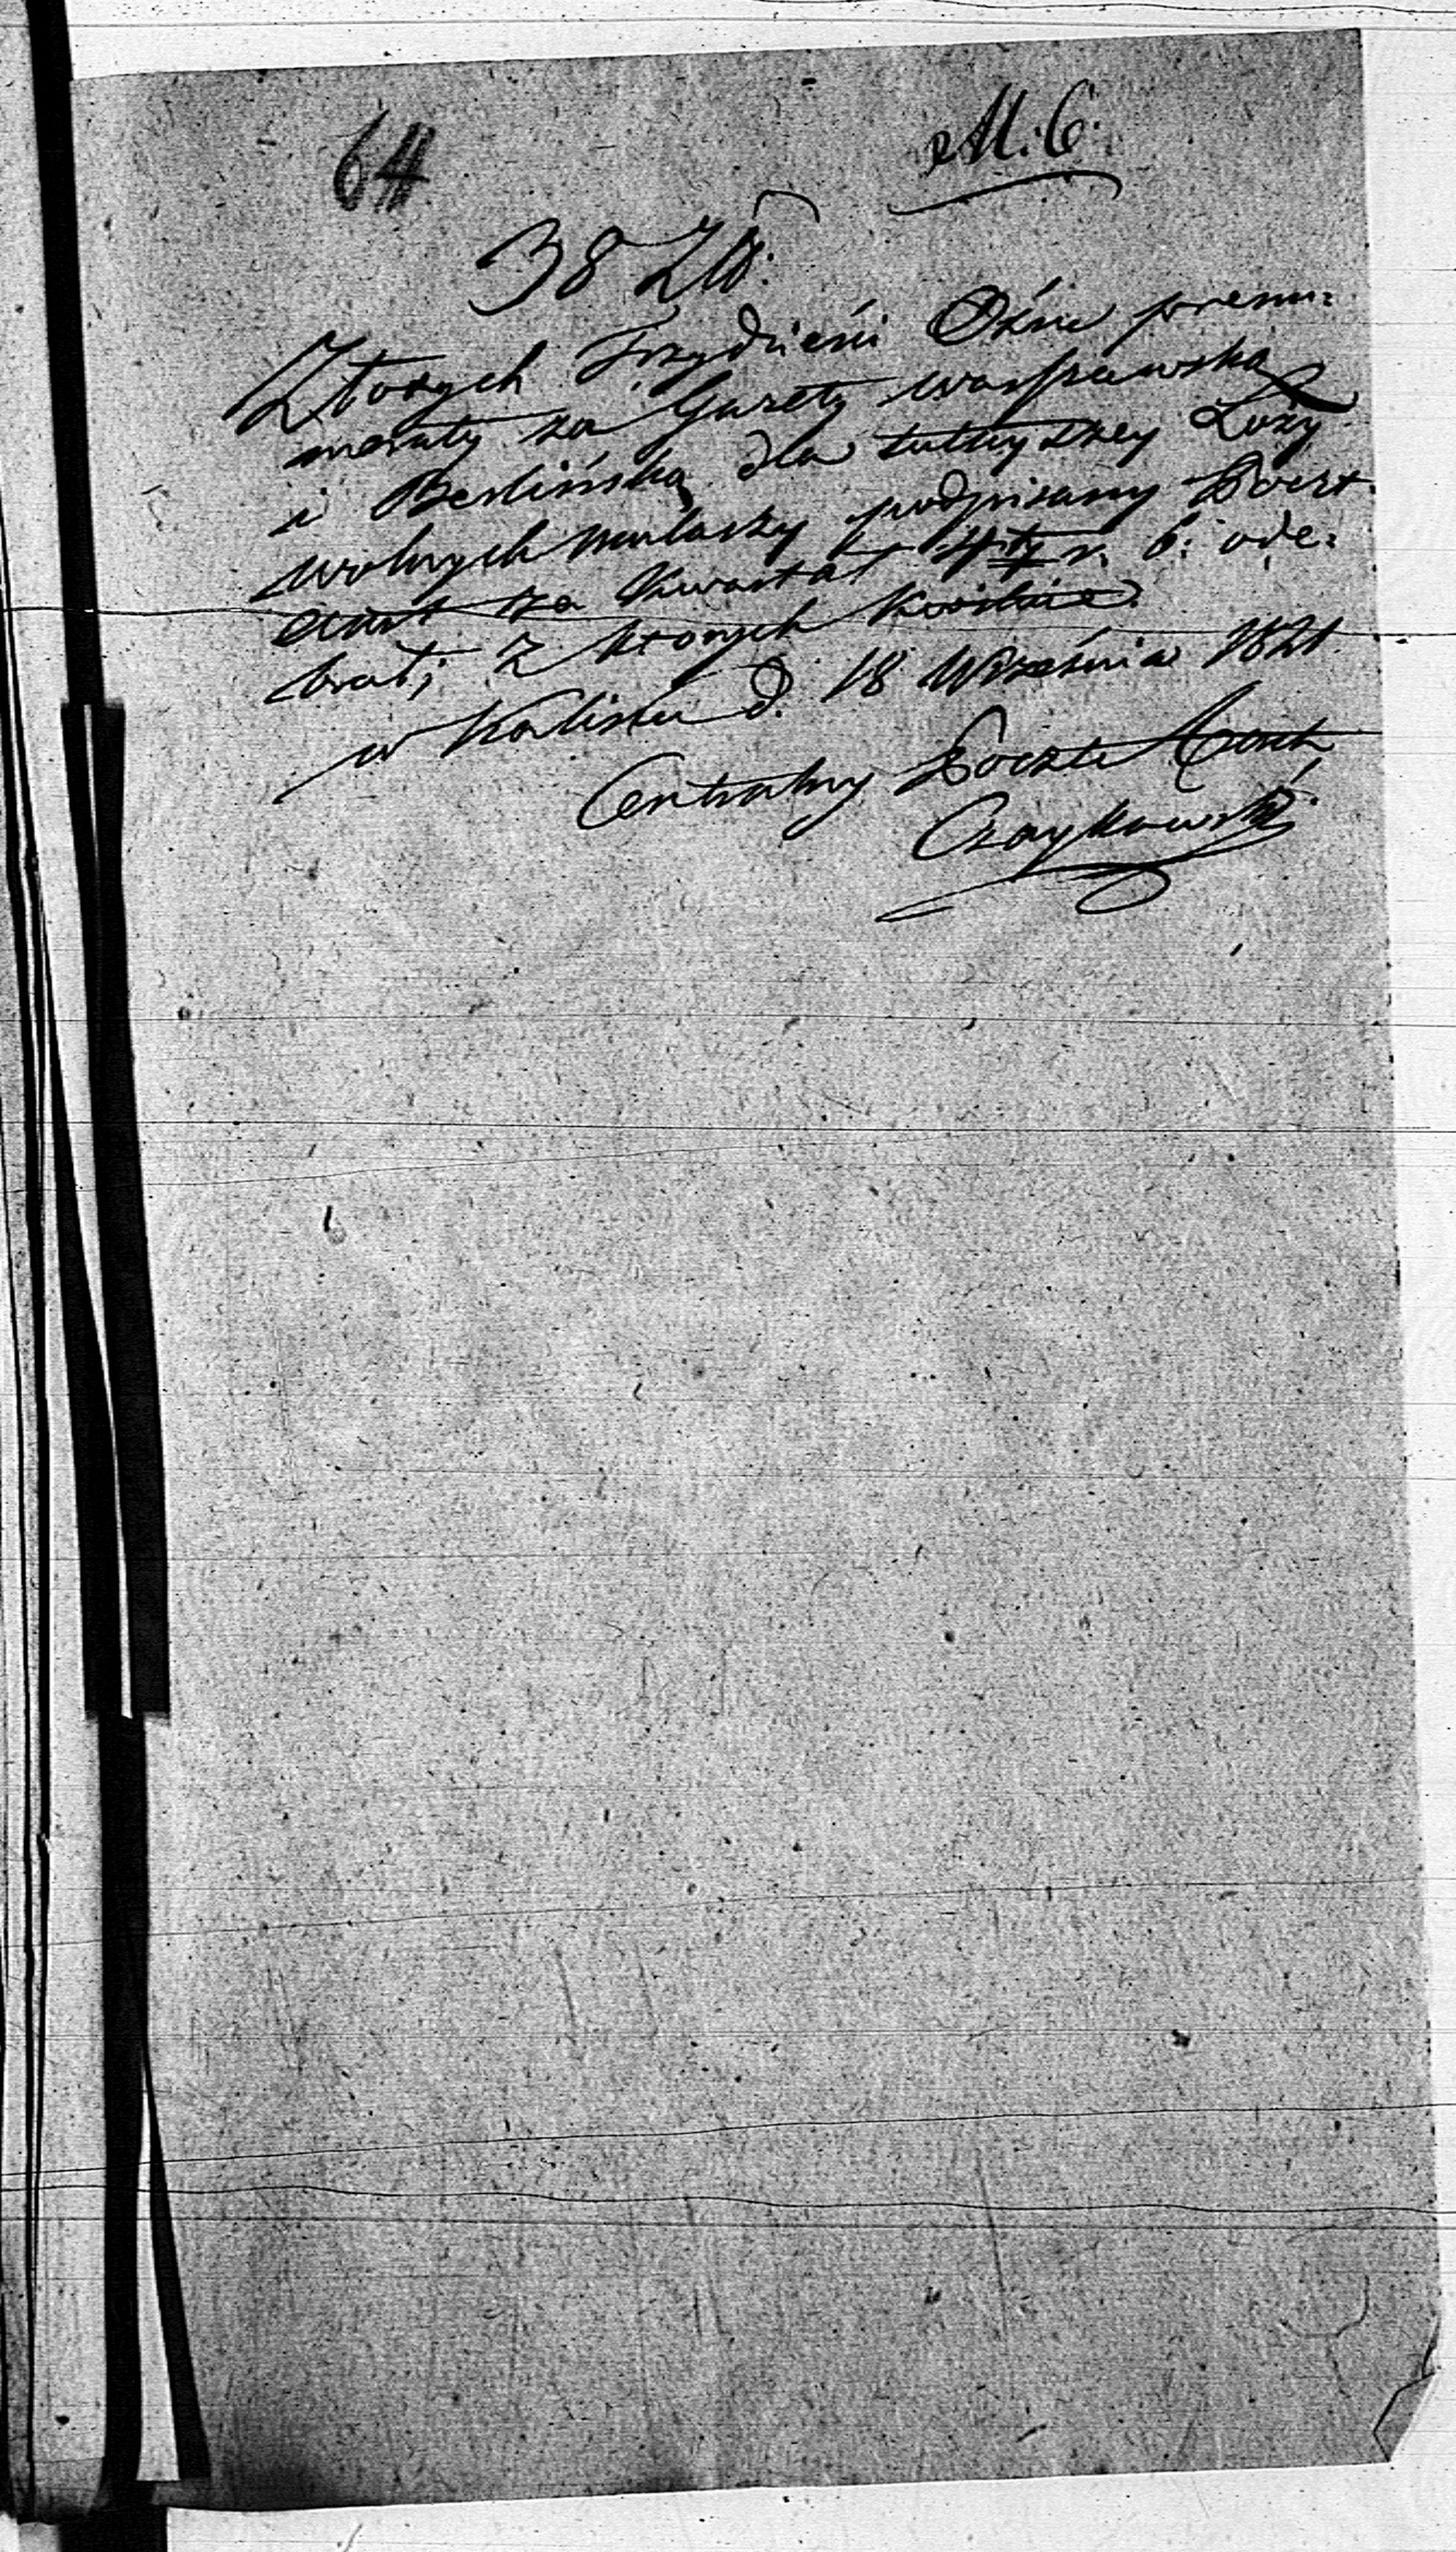 64
M: 6.
38 Zł:
Złotych Trzydzieści Ośm prenu=
meraty za Gazetę warszawską
i Berlińską dla tuteyszey Loży
wolnych mularzy podpisany Poczt
za kwartał 4ty r. b: ode=
brał; z których kwituie.
w Kaliszu d. 18 Września 1821.
Centralny Poczt
Czaykowski